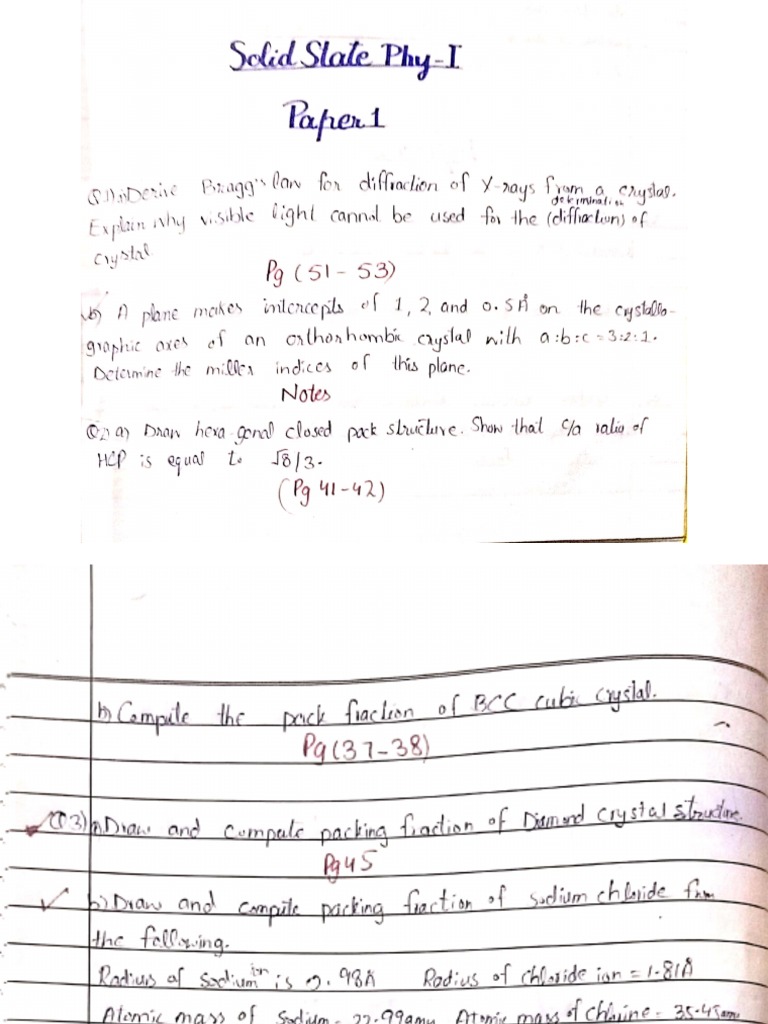 Solid State Phy-I
Paper 1
Q1) a) Derive Bragg's law for diffraction of X-rays from a crystal.
determination
Explain why visible light cannot be used for the (diffraction) of
crystal
Pg (51 - 53)
b) A plane makes intercepts of 1, 2, and 0.5Å on the crystallo-
graphic axes of an orthorhombic crystal with a:b:c = 3:2:1.
Determine the miller indices of this plane.
Notes
Q2) a) Draw hexa-gonal closed pack structure. Show that c/a ratio of
HCP is equal to √8/3.
(Pg 41-42)
b) Compute the pack fraction of BCC cubic crystal.
Pg (37-38)
Q3) a) Draw and compute packing fraction of Diamond Crystal structure.
Pg 45
b) Draw and compute packing fraction of sodium chloride from
the following.
Radius of sodium ion is 0.98Å Radius of chloride ion = 1.81Å
Atomic mass of Sodium = 22.99amu Atomic mass of Chlorine = 35.45amu